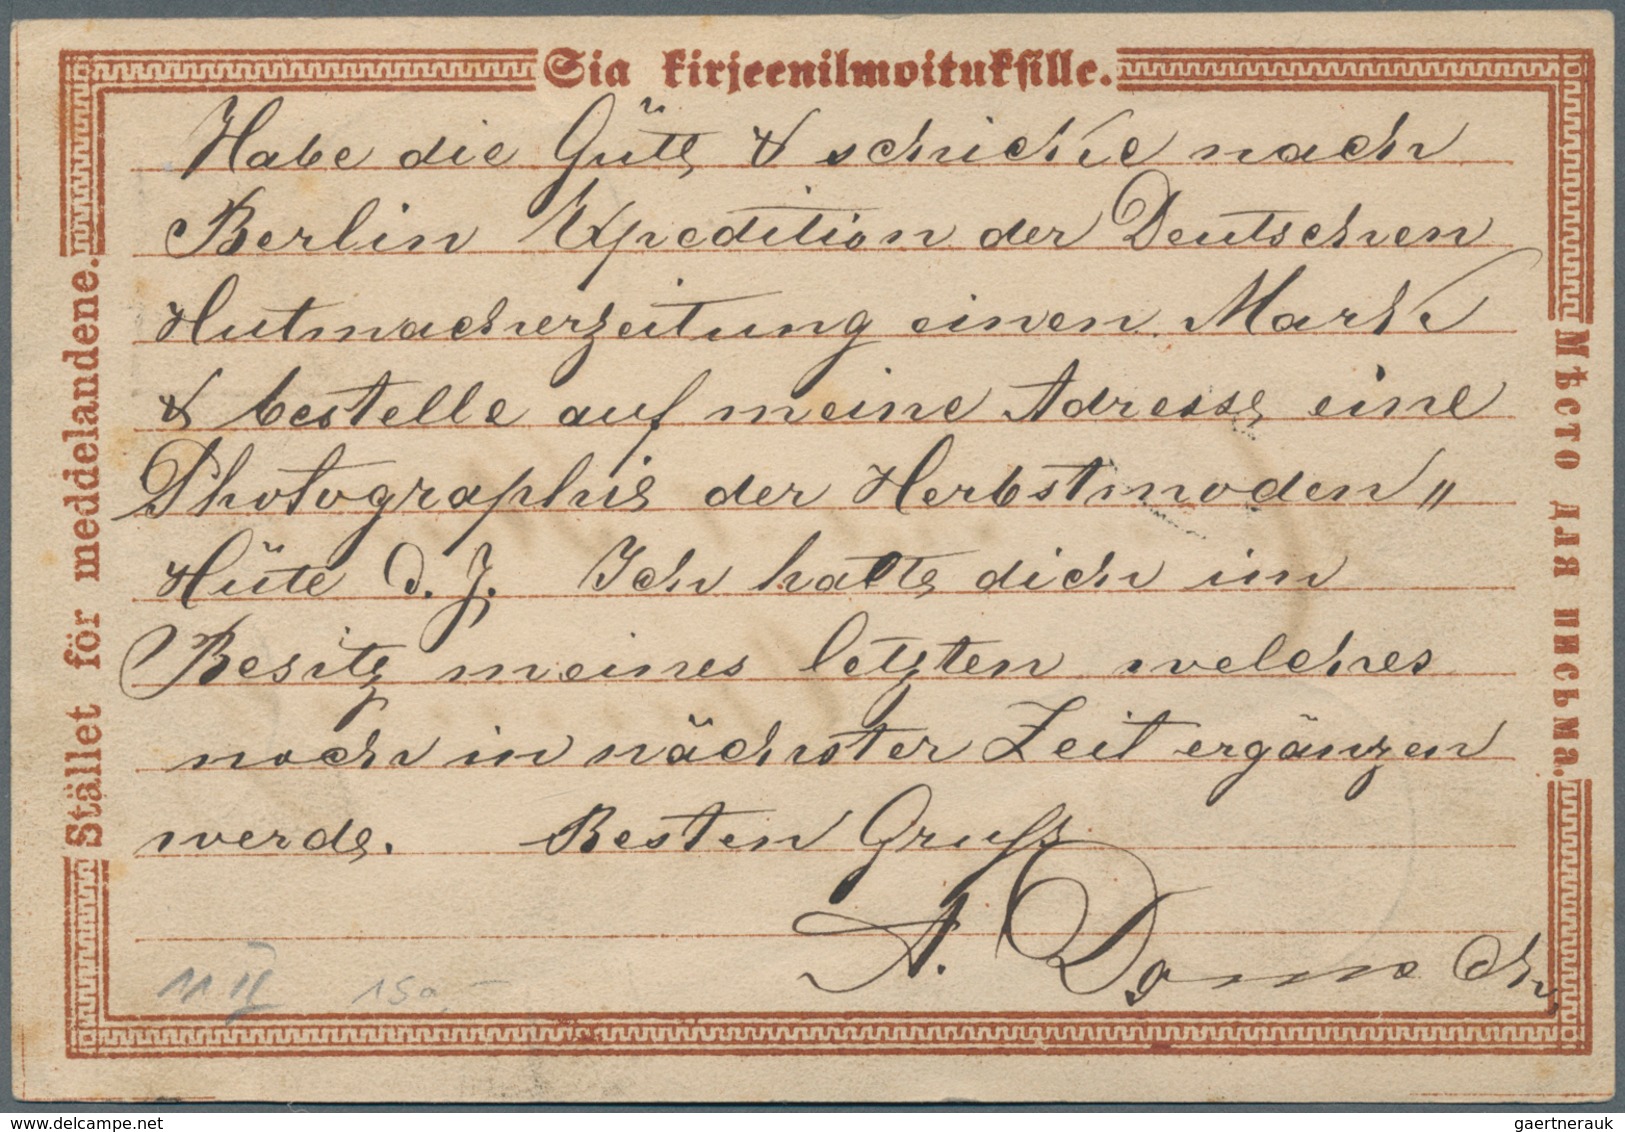 Sia kirjeenilmoituksille.
Stället för meddelandene.
Мѣсто для письма.
Habe die Güte & schicke nach
Berlin Expedition der Deutschen
Hutmacherzeitung einen Mark
& bestelle auf meine Adresse eine
Photographie der Herbstmoden „
Hüte d. J. Ich hatte dich im
Besitz meines letzten welches
noch in nächster Zeit ergänzen
werde. Besten Gruß
A.
150,-
gaertnerauk
delcampe.net